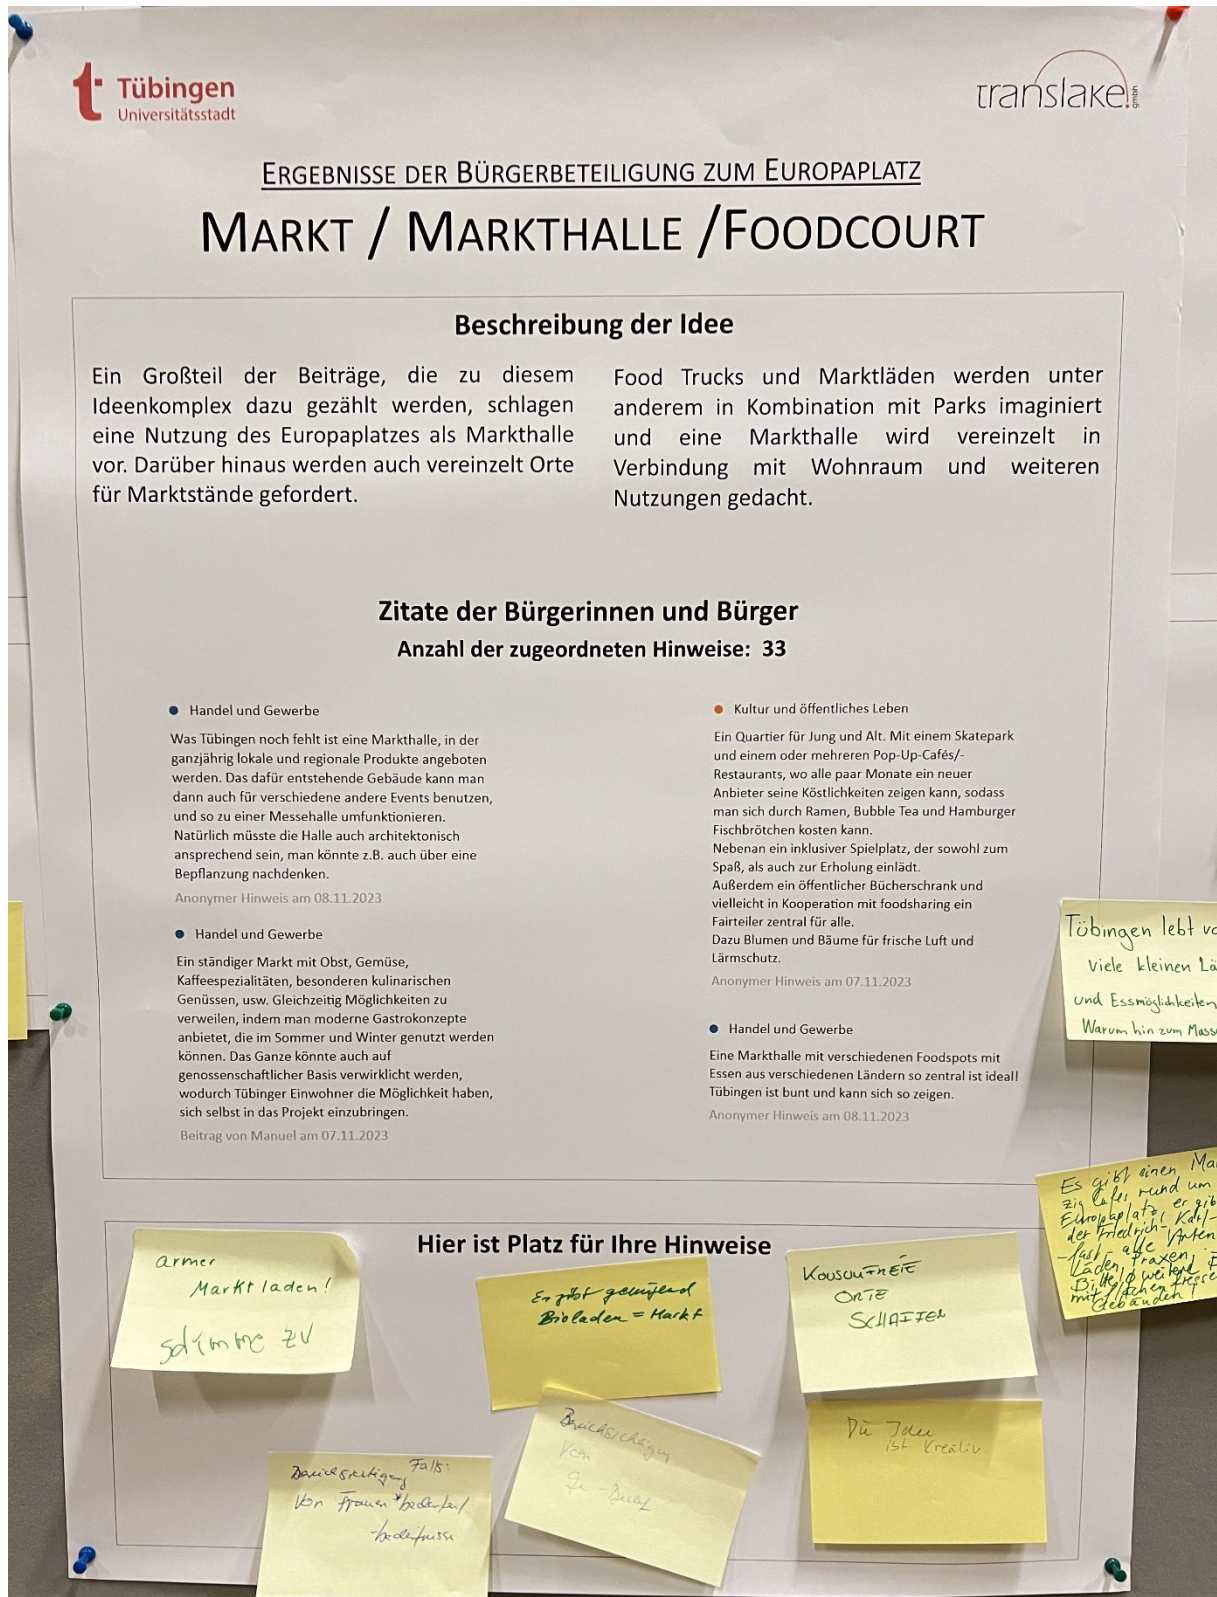 Tübingen
Universitätsstadt
translake
gmbh
ERGEBNISSE DER BÜRGERBETEILIGUNG ZUM EUROPAPLATZ
MARKT / MARKTHALLE /FOODCOURT
Beschreibung der Idee
Ein Großteil der Beiträge, die zu diesem
Ideenkomplex dazu gezählt werden, schlagen
eine Nutzung des Europaplatzes als Markthalle
vor. Darüber hinaus werden auch vereinzelt Orte
für Marktstände gefordert.
Food Trucks und Marktläden werden unter
anderem in Kombination mit Parks imaginiert
und eine Markthalle wird vereinzelt in
Verbindung mit Wohnraum und weiteren
Nutzungen gedacht.
Zitate der Bürgerinnen und Bürger
Anzahl der zugeordneten Hinweise: 33
Handel und Gewerbe
Was Tübingen noch fehlt ist eine Markthalle, in der
ganzjährig lokale und regionale Produkte angeboten
werden. Das dafür entstehende Gebäude kann man
dann auch für verschiedene andere Events benutzen,
und so zu einer Messehalle umfunktionieren.
Natürlich müsste die Halle auch architektonisch
ansprechend sein, man könnte z.B. auch über eine
Bepflanzung nachdenken.
Anonymer Hinweis am 08.11.2023
Handel und Gewerbe
Ein ständiger Markt mit Obst, Gemüse,
Kaffeespezialitäten, besonderen kulinarischen
Genüssen, usw. Gleichzeitig Möglichkeiten zu
verweilen, indem man moderne Gastrokonzepte
anbietet, die im Sommer und Winter genutzt werden
können. Das Ganze könnte auch auf
genossenschaftlicher Basis verwirklicht werden,
wodurch Tübinger Einwohner die Möglichkeit haben,
sich selbst in das Projekt einzubringen.
Beitrag von Manuel am 07.11.2023
Kultur und öffentliches Leben
Ein Quartier für Jung und Alt. Mit einem Skatepark
und einem oder mehreren Pop-Up-Cafés/-
Restaurants, wo alle paar Monate ein neuer
Anbieter seine Köstlichkeiten zeigen kann, sodass
man sich durch Ramen, Bubble Tea und Hamburger
Fischbrötchen kosten kann.
Nebenan ein inklusiver Spielplatz, der sowohl zum
Spaß, als auch zur Erholung einlädt.
Außerdem ein öffentlicher Bücherschrank und
vielleicht in Kooperation mit foodsharing ein
Fairteiler zentral für alle.
Dazu Blumen und Bäume für frische Luft und
Lärmschutz.
Anonymer Hinweis am 07.11.2023
Handel und Gewerbe
Eine Markthalle mit verschiedenen Foodspots mit
Essen aus verschiedenen Ländern so zentral ist ideal!
Tübingen ist bunt und kann sich so zeigen.
Anonymer Hinweis am 08.11.2023
Tübingen lebt
viele kleinen
und Essmöglichkeiten
Warum hin zum
Es gibt einen
zig Cafes rund um
Europaplatz, er
der Friedrich-, Karl-
-fast- alle
Läden, Praxen,
weitere
mit
Gebäuden!
Hier ist Platz für Ihre Hinweise
armer
Marktladen!
stimme zu
Es gibt genügend
Bioladen = Markt
KONSUMFREIE
ORTE
SCHAFFEN
Falls:
Von Frauen*
-bedürfnisse
Von
Die Idee
ist Kreativ